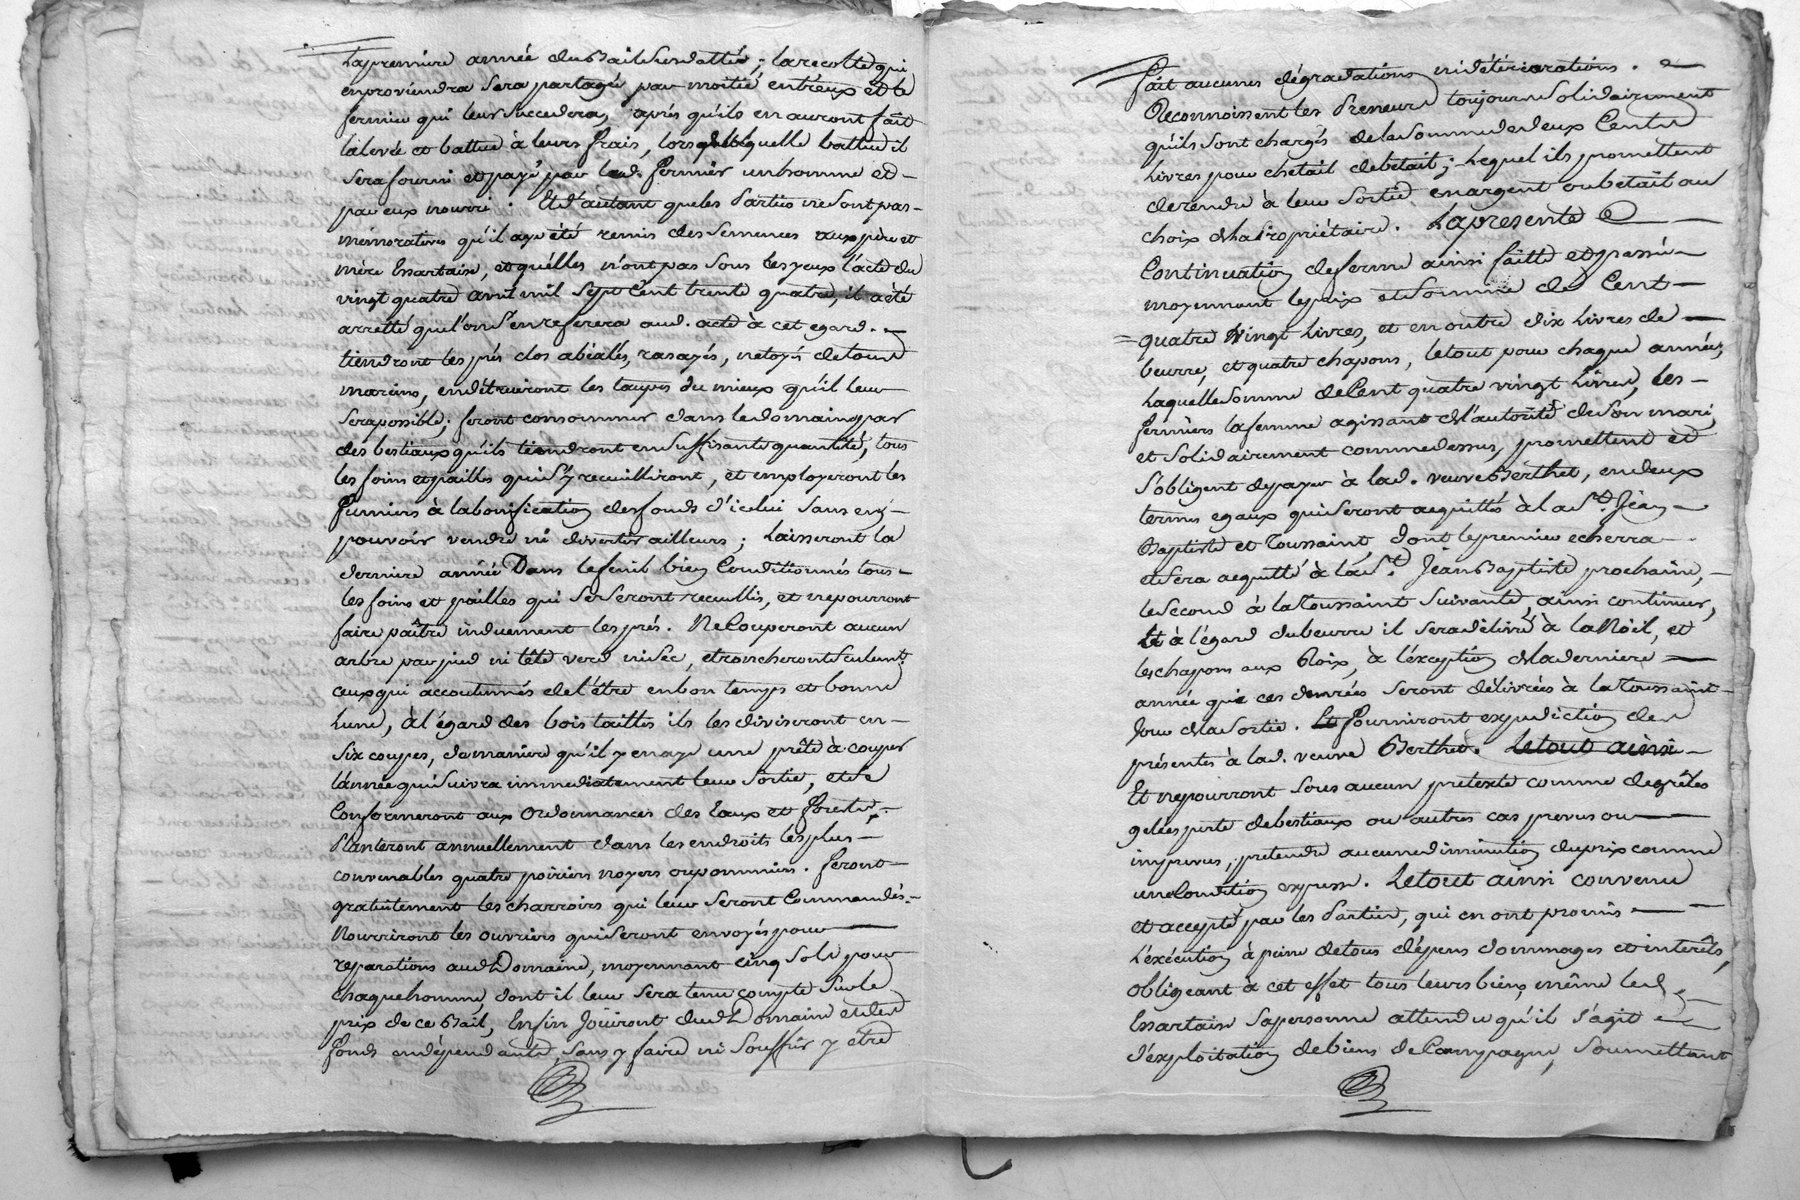 La premiere année du Bail Susdattée ; la recolte qui
en proviendra Sera partagée par moitié entr'eux et le
fermier qui leur Succedera, après qu'ils en auront fait
la levée et battue à leurs frais, lors de laquelle battue il
Sera fourni et payé par led. fermier un homme et
par eux nourri. Et d'autant que les Parties ne Sont pas
mémoratives qu'il aye été remis des Semences aux père et
mère Essartaise, et qu'elles n'ont pas Sous les yeux l'acte du
vingt quatre avril mil Sept Cent trente quatre, il a été
arretté que l'on S'en referera aud. acte à cet egard.
tiendront les prés clos abialés, rasayés, netoyés de tous
marins, en détruiront les taupes du mieux qu'il leur
Sera possible ; feront consommer dans le domaine par
des bestiaux qu'ils tiendront en Suffisante quantité, tous
les foins et pailles qui S'y recuilliront, et employeront les
fumiers à la bonification des fonds d'icelui Sans en
pouvoir vendre ni divertir ailleurs ; Laisseront la
derniere année Dans le fenil bien Conditionnés tous
les foins et pailles qui Se Seront recuillis, et ne pourront
faire paître induement les prés. Ne Couperont aucun
arbre par pied ni tête verd ni Sec, etroncheront Seulemt.
ceux qui accoutumés de l'être en bon temps et bonne
Lune, à l'égard des bois taillis ils les diviseront en
Six coupes, de maniere qu'il y en aye une prête à couper
l'année qui Suivra immediatement leur Sortie, et Se
Conformeront aux Ordonnances des Eaux et forets.
Planteront annuellement dans les endroits les plus
convenables quatre poiriers noyers ou pommiers. feront
gratuitement les charroirs qui leur Seront Commandés.
Nourriront les ouvriers qui Seront envoyés pour
reparations aud. Domaine, moyennant cinq Sols pour
chaque homme, dont il leur Sera tenu compte Sur le
prix de ce Bail, Enfin Joüiront dud. Domaine et des
fonds en dépendants, Sans y faire ni Souffrir y être
fait aucunes dégradations ni détériorations.
Reconnoissent les Preneurs toujours Solidairement
qu'ils Sont chargés de la Somme de deux Cents
Livres pour chetail de betail ; Lequel ils promettent
de rendre à leur Sortie en argent ou betail au
choix de la Propriétaire. La presente
Continuation de ferme ainsi faitte et passée
moyennant le prix et Somme de Cent
quatre Vingt Livres, et en outre dix Livres de
beurre, et quatre chapons, le tout pour chaque année,
Laquelle Somme de Cent quatre vingt Livres, les
fermiers la femme agissant de l'autorité de Son mari,
et Solidairement comme dessus, promettent et
S'obligent de payer à lad. veuve Berthet, en deux
termes egaux qui Seront acquittés à la St. Jean
Baptiste et Toussaint, dont le premier echerra
et Sera acquitté à la St. Jean Baptiste prochaine,
le Second à la Toussaint Suivante, ainsi continuer,
Et à l'égard du beurre il Sera délivré à la Noël, et
les chapons aux Rois, à l'exception de la derniere
année que ces denrées Seront délivrées à la Toussaint
Jour de la Sortie. Et fourniront expedition des
présentes à lad. veuve Berthet. Le tout ainsi
Et ne pourront Sous aucun pretexte comme de grêles
gelées perte de bestiaux ou autres cas prevus ou
imprevus, pretendre aucune diminution du prix comme
une Condition expresse. Le tout ainsi convenu
et accepté par les Parties, qui en ont promis
L'exécution à peine de tous dépens dommages et interêts,
Obligeant à cet effet tous leurs biens, même led.
Essartaise Sa personne attendu qu'il S'agit
d'exploitation de biens de Campagne, Soumettant